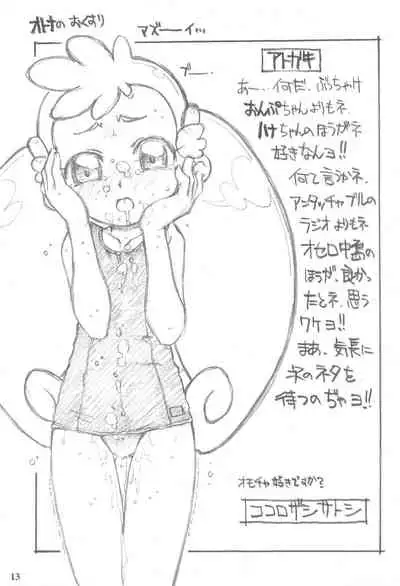 オトナの おくすり
アズーーイ…
ブー…
アトガキ
あー…、何だ、ぶっちゃけ
おんぷちゃんよりもネ、
ハナちゃんのほうがネ
好きなんヨ!!
何て言うかネ、
アンタッチャブルの
ラジオよりもネ
オセロ中島の
ほうが、良かっ
たとネ、思う
ワケヨ!!
まあ、気長に
次のネタを
待つのぢゃヨ!!
オモチャ好きですか?
ココロザシサトシ
13